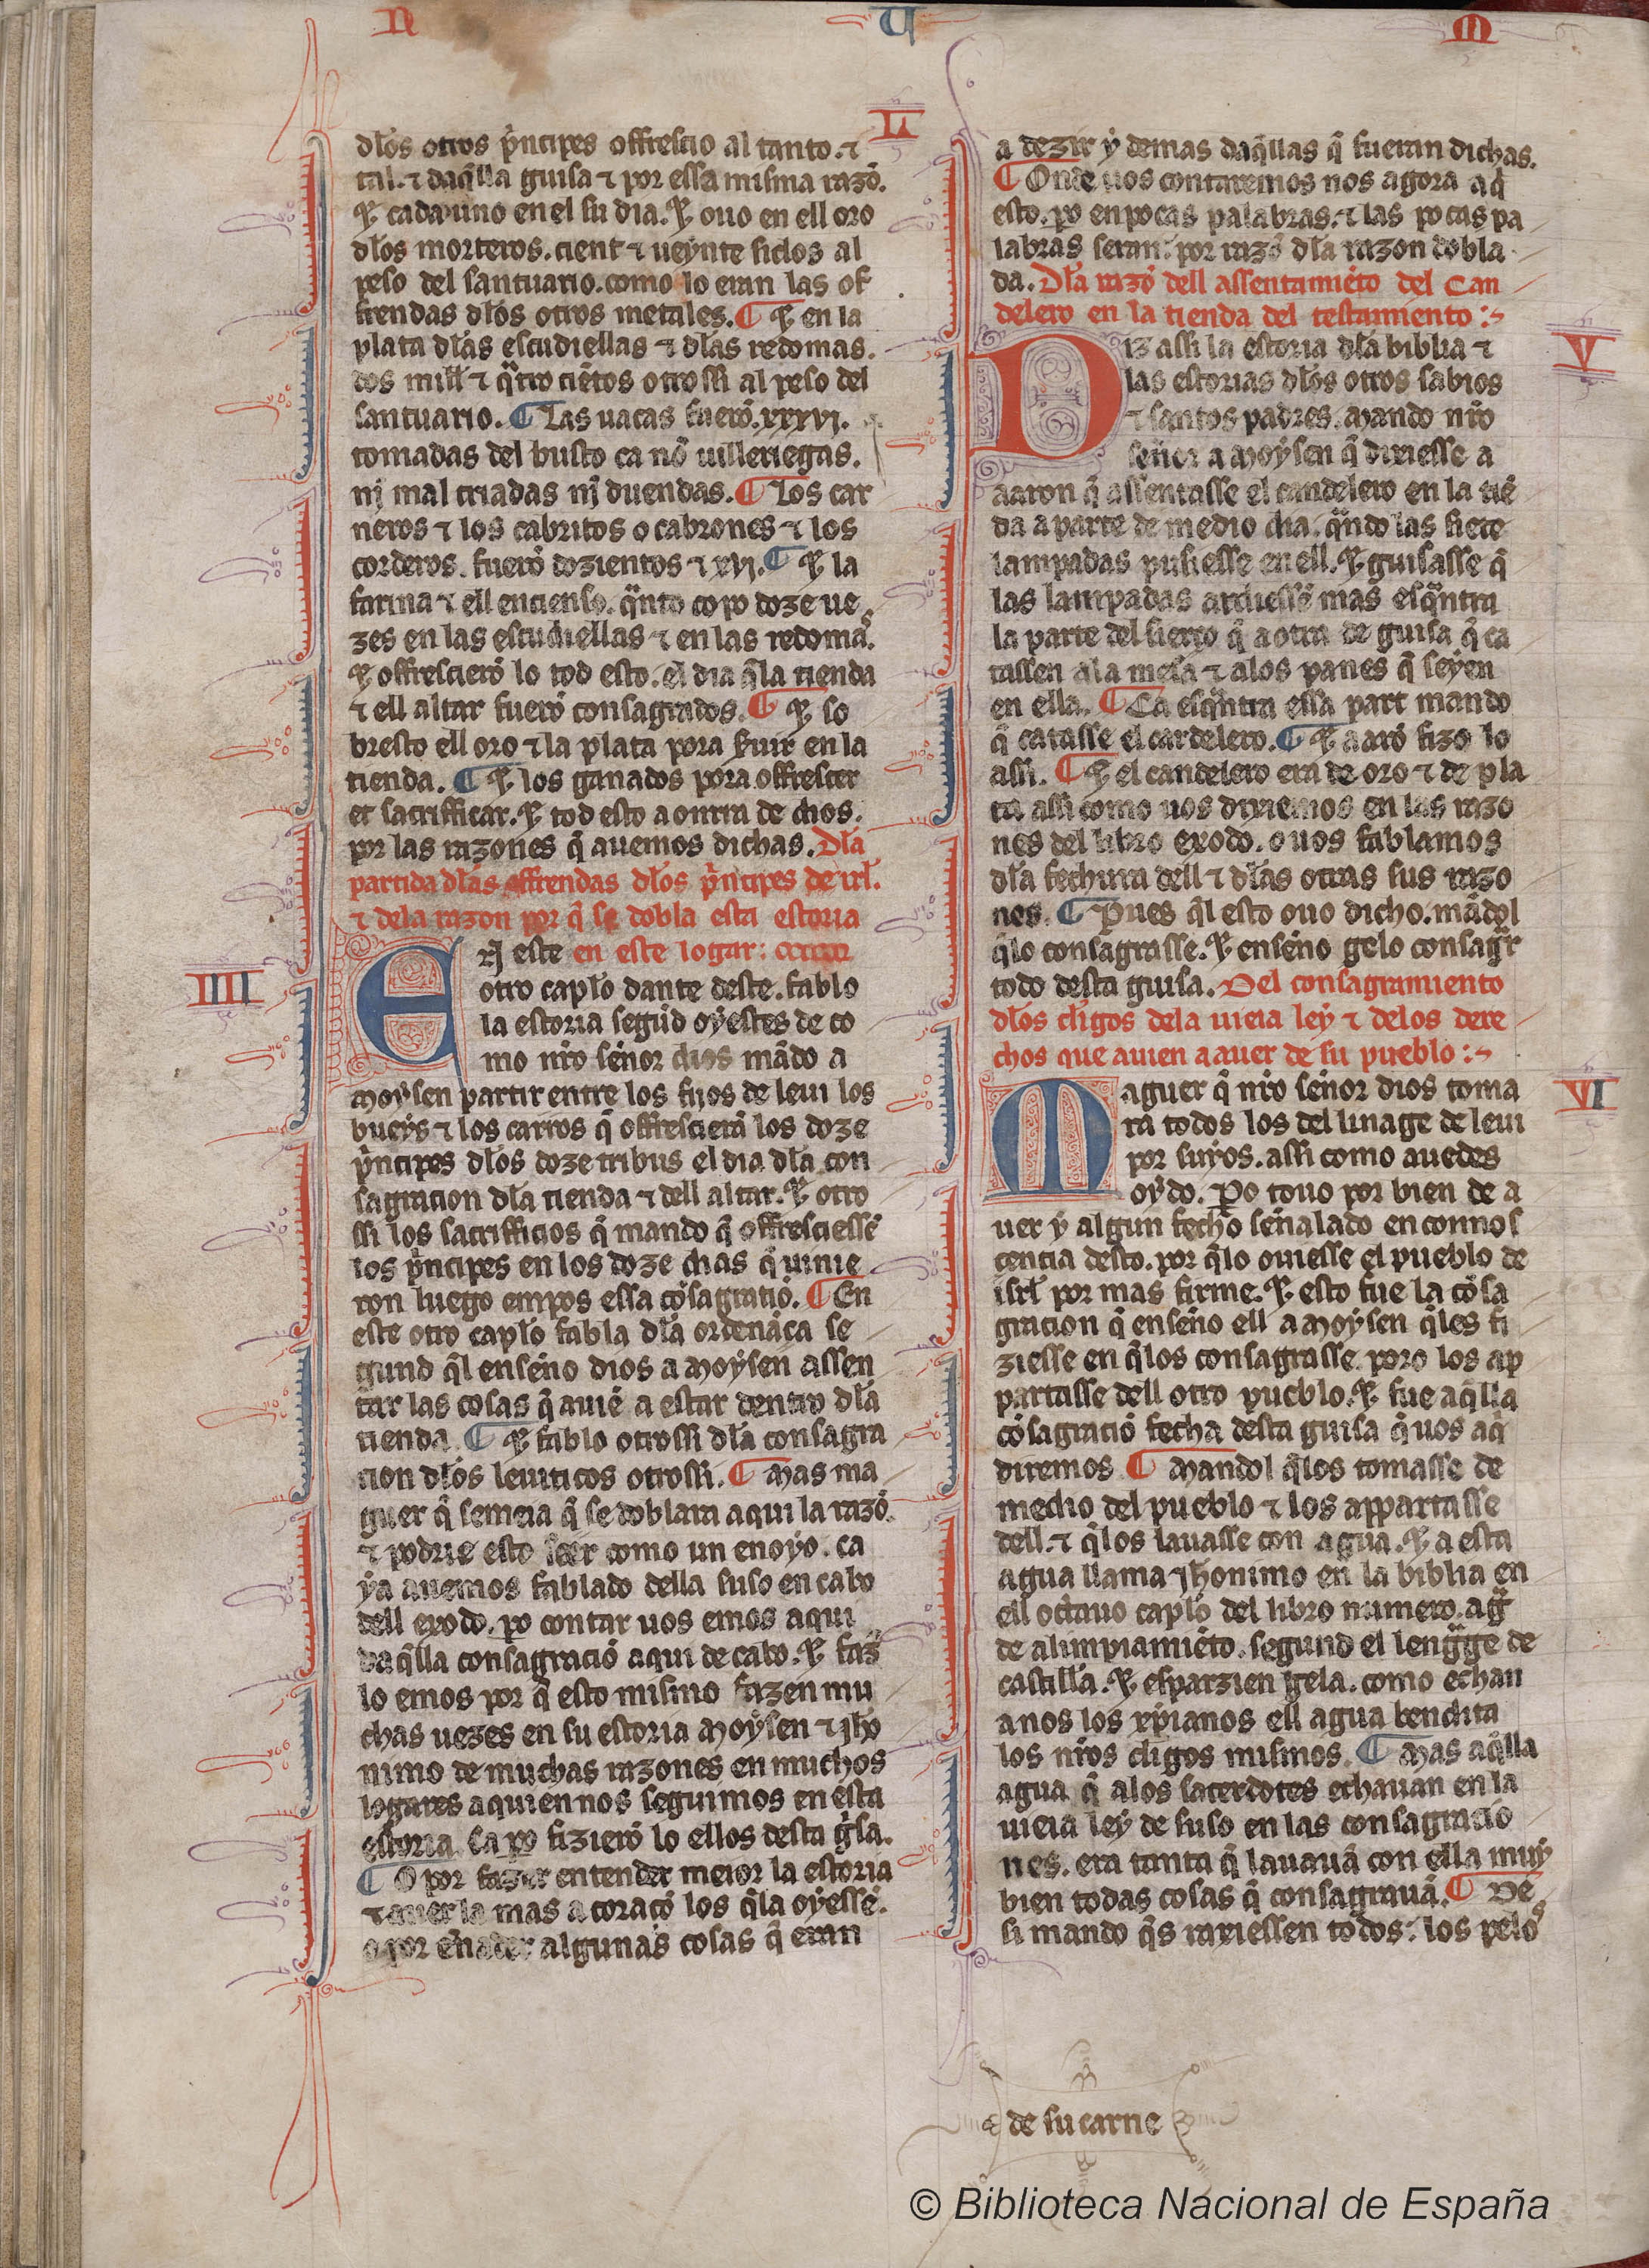 N U M
L
dłos otros p̍ncipes offrescio al tanto. ⁊
tal. ⁊ daq̃lla guisa ⁊ por essa misma razõ.
⁊ cada uno en el su dia. ⁊ ouo en ell oro
dłos morteros. cient ⁊ ueynte siclos al
peso del santuario. como lo eran las of
frendas dłos otros metales. ¶ ⁊ en la
plata dłas escudiellas ⁊ dłas redomas.
dos mill ⁊ q̃tro ciẽtos otrossi al peso del
santuario. ¶ Las uacas fuerõ. xxxvj.
tomadas del busto ca nõ uilleriegas.
nj mal criadas nj duendas. ¶ Los car
neros ⁊ los cabritos o cabrones ⁊ los
corderos. fuerõ dozientos ⁊ xvj. ¶ ⁊ la
farina ⁊ ell encienso. q̃nto copo doze ue
zes en las escudiellas ⁊ en las redomas.
⁊ offrescierõ lo tod esto. el dia q̃ la tienda
⁊ ell altar fuerõ consagrados. ¶ ⁊ so
bresto ell oro ⁊ la plata pora seruir en la
tienda. ¶ ⁊ los ganados pora offrescer
et sacrifficar. ⁊ tod esto a onrra de dios.
por las razones q̃ auemos dichas. Dła
partida dłas offrendas dłos p̍ncipes de irł.
⁊ dela razon por q̃ se dobla esta estoria
en este logar:
IIII
En este
otro capło dante deste. fablo
la estoria segũd oyestes de co
mo nr̃o señor dios mãdo a
Moysen partir entre los fijos de leui los
bueys ⁊ los carros q̃ offrescierã los doze
p̍ncipes dłos doze tribus el dia dła con
sagracion dła tienda ⁊ dell altar. ⁊ otro
ssi los sacrifficios q̃ mando q̃ offresciessẽ
los p̍ncipes en los doze dias q̃ uinie
ron luego empos essa cõsagraciõ. ¶ En
este otro capło fabla dła ordenãca se
gund q̃l enseño dios a Moysen assen
tar las cosas q̃ auiẽ a estar dentro dła
tienda. ¶ ⁊ fablo otrossi dła consagra
cion dłos leuiticos otrossi. ¶ Mas ma
guer q̃ semeia q̃ se doblara aqui la razõ.
⁊ podrie esto seer como un enoyo. ca
ya auemos fablado della suso en cabo
dell exodo. po contar uos emos aqui
daq̃lla consagraciõ aqui de cabo. ⁊ faz
lo emos por q̃ esto mismo fazen mu
chas uezes en su estoria Moysen ⁊ jho
nimo de muchas razones en muchos
logares aquien nos seguimos en esta
estoria. ca po fizierõ lo ellos desta g̍sa.
¶ O por fazer entender meior la estoria
⁊ auer la mas a coraçõ los q̃ la oyessẽ.
o por eñader algunas cosas q̃ eran
a dezir y demas daq̃llas q̃ fueran dichas.
¶ Onde uos contaremos nos agora aq̍
esto. po en pocas palabras. ⁊ las pocas pa
labras seran. por razõ dła razon dobla
da. Dła razõ dell assentamiẽto del Can
delero en la tienda del testamiento:
V
Diz assi la estoria dła biblia ⁊
las estorias dłos otros sabios
⁊ santos padres. Mando nr̃o
señor a Moysen q̃ dixiesse a
aaron q̃ assentasse el candelero en la tiẽ
da a parte de medio dia. q̃ndo las siete
lampadas pusiesse en ell. ⁊ guisasse q̃
las lampadas ardiessẽ mas esq̃ntra
la parte del sierço q̃ a otra de guisa q̃ ca
tassen ala mesa ⁊ alos panes q̃ seyen
en ella. ¶ Ca esq̃ntra essa part mando
q̃ catasse el cardelero. ¶ ⁊ aarõ fizo lo
assi. ¶ ⁊ el candelero era de oro ⁊ de pla
ta assi como uos dixiemos en las razo
nes del libro exodo. o uos fablamos
dła fechura dell ⁊ dłas otras sus razo
nes. ¶ Pues q̃l esto ouo dicho. mãdol
q̃lo consagrasse. ⁊ enseño gelo consagr̃
todo desta guisa. Del consagramiento
dłos cłigos dela uieia ley ⁊ delos dere
chos que auien a auer de su pueblo:
VI
Maguer q̃ nr̃o señor dios toma
ra todos los del linage de leui
por suyos. assi como auedes
oydo. Po touo por bien de a
uer y algun fecho señalado en connos
cencia desto. por q̃lo ouiesse el pueblo de
isrł por mas firme. ⁊ esto fue la cõsa
gracion q̃ enseño ell a Moysen q̃les fi
ziesse en q̃los consagrasse. poro los ap
partasse dell otro pueblo. ⁊ fue aq̃lla
cõsagraciõ fecha desta guisa q̃ uos aq̍
diremos ¶ Mandol q̃los tomasse de
medio del pueblo ⁊ los appartasse
dell. ⁊ q̃los lauasse con agua. ⁊ a esta
agua llama jheronimo en la biblia en
ell octauo capło del libro numero. ag̃
de alimpiamiẽto. segund el lengage de
castilla. ⁊ esparzien gela. como echan
a nos los xp̃ianos ell agua bendita
los nr̃os cłigos mismos. ¶ Mas aq̃lla
agua q̃ alos sacerdotes echauan en la
uieia ley de suso en las consagracio
nes. era tanta q̃ lauauã con ella muy
bien todas cosas q̃ consagrauã. ¶ De
si mando q̃s raxiessen todos: los pelos
de su carne
© Biblioteca Nacional de España